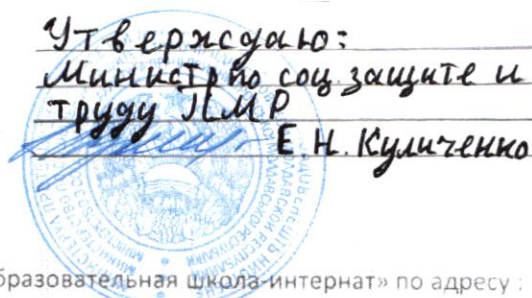 Утверждаю:
Министр по соц. защите и
труду ПМР
Е Н. Куличенко
бразовательная школа-интернат» по адресу :